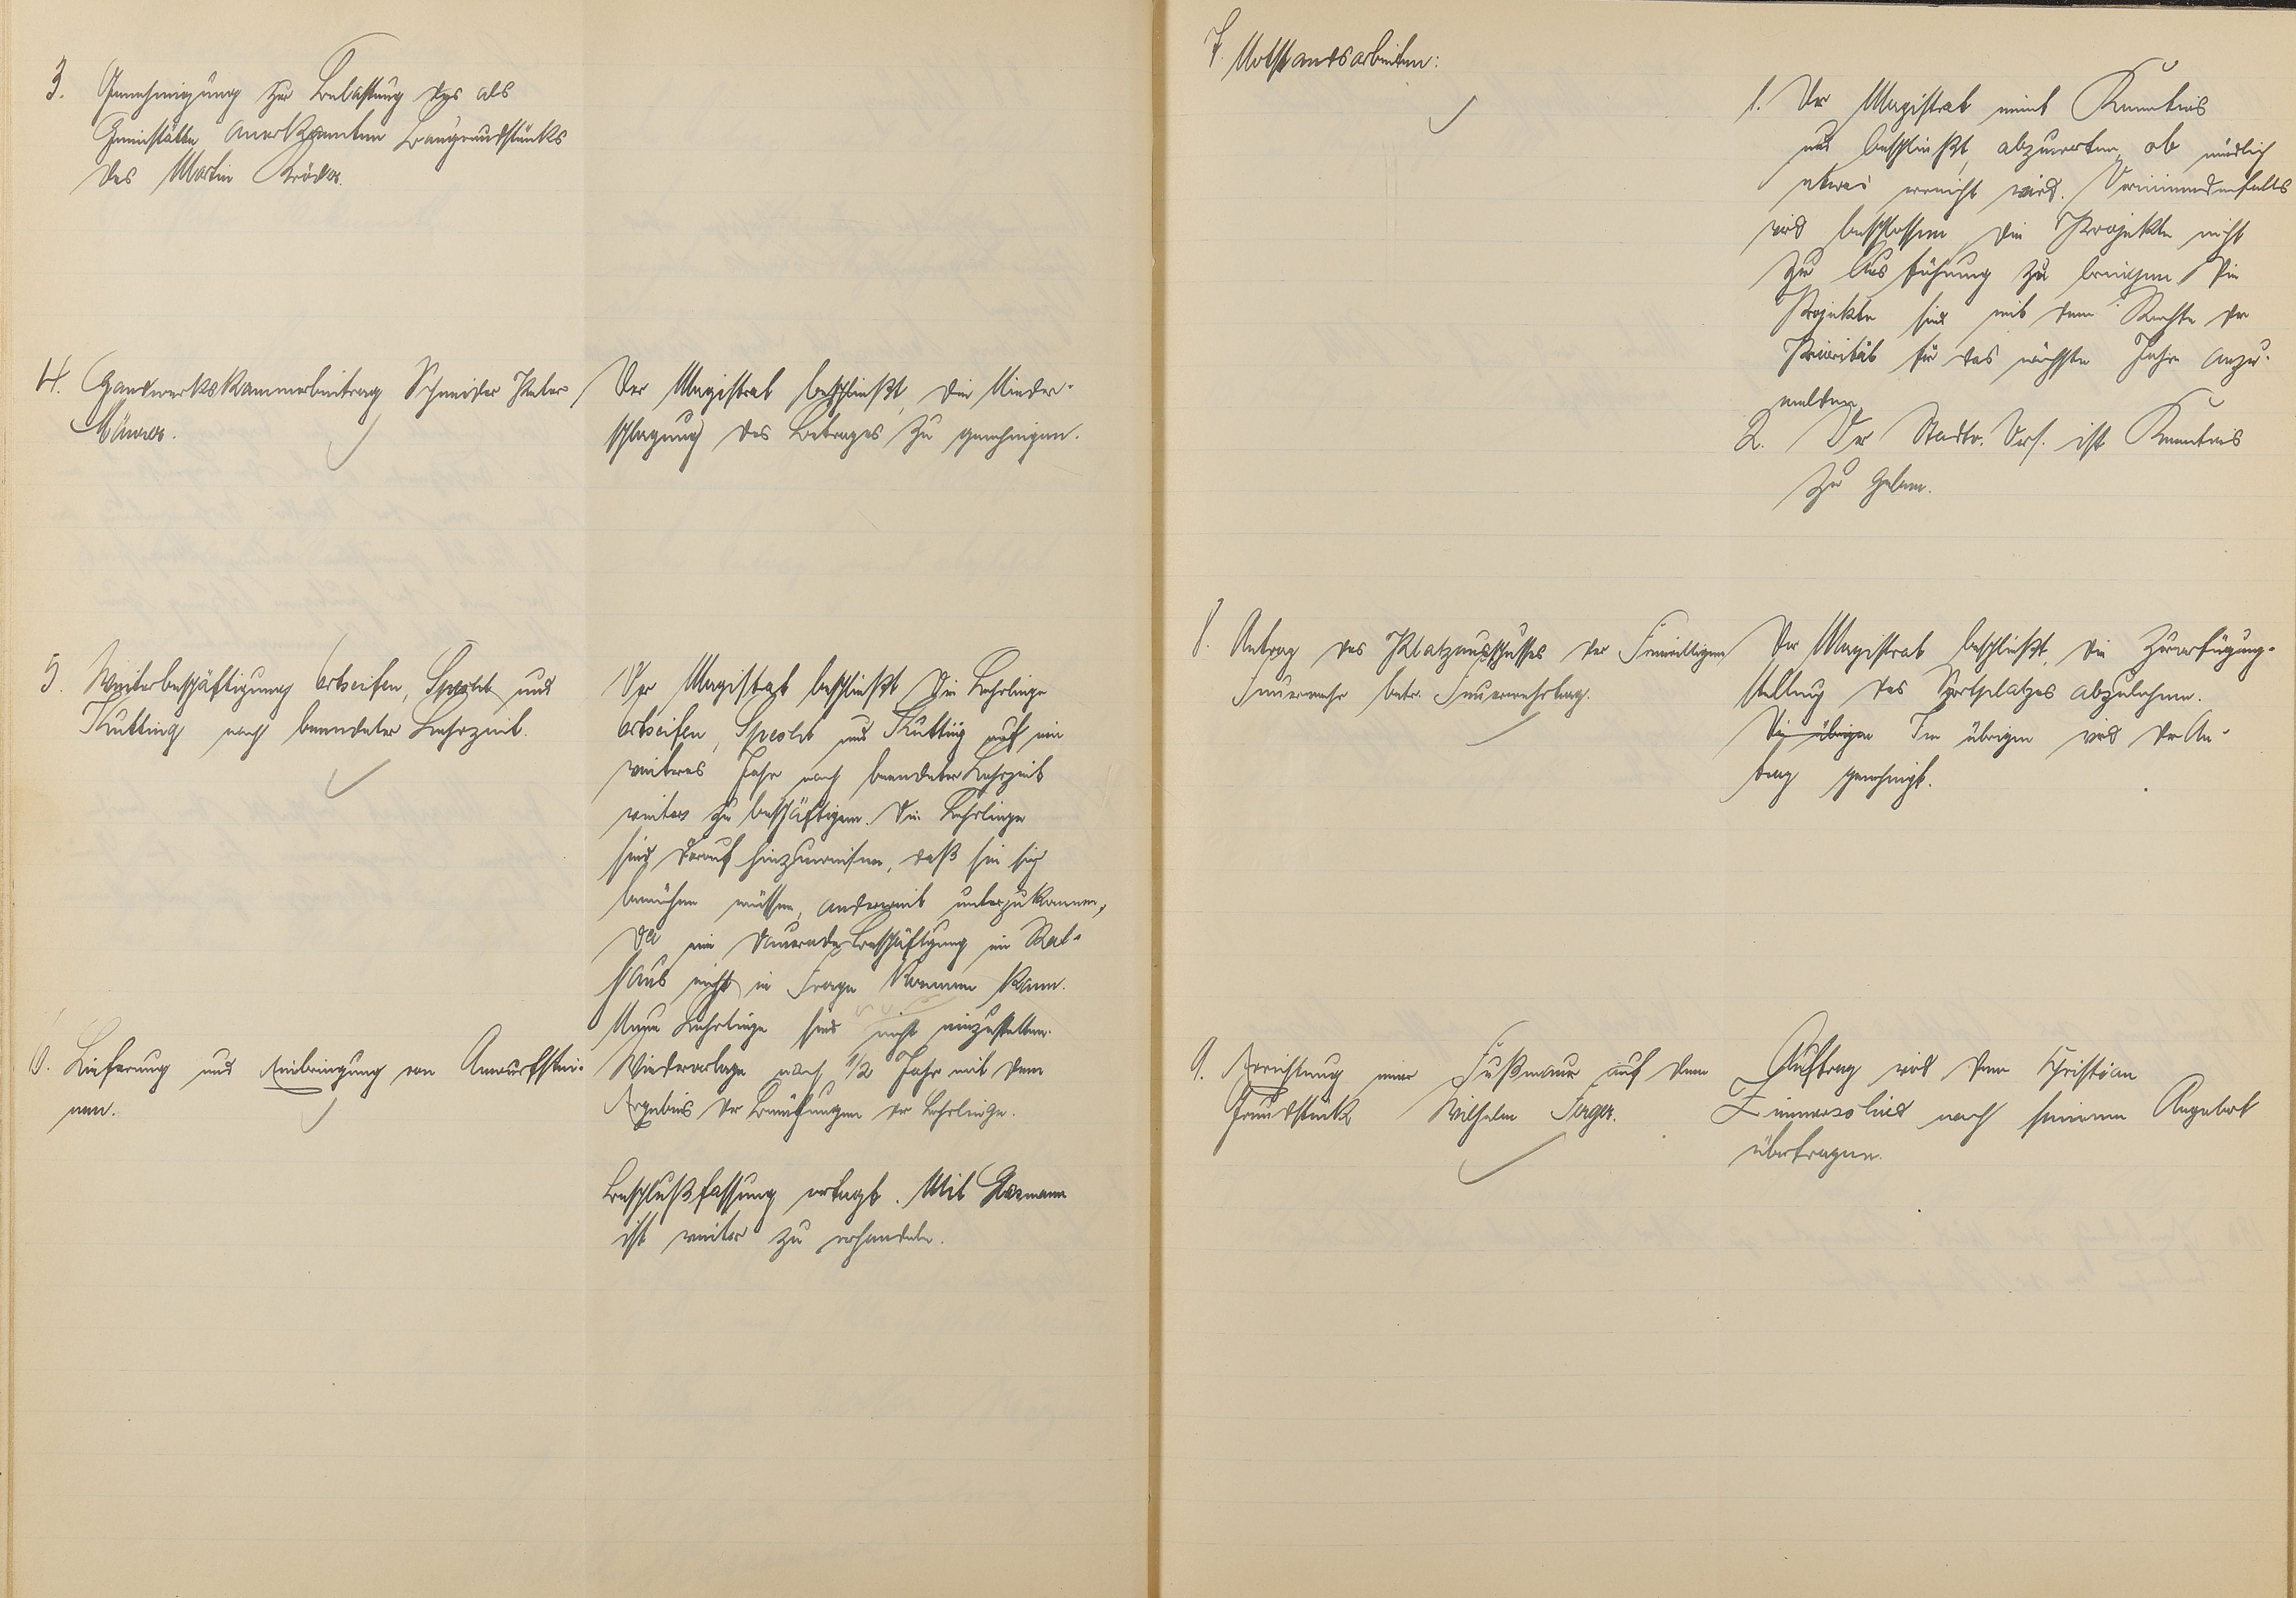 3. Genehmigung zur Belastung des als
Heimstätte anerkannten Baugrundstücks
des Martin Kröder.
4. Handwerkskammerbeitrag Schneider Peter
Der Magistrat beschließt, die Nieder-
schlagung des Betrages zu genehmigen.
5. Weiterbeschäftigung Ortseifen, Specht und
Kutting nach beendeter Lehrzeit.
Der Magistrat beschließt die Lehrlinge
Ortseifen, Specht und Kutting auf ein
weiteres Jahr nach beendeter Lehrzeit
weiter zu beschäftigen. Die Lehrlinge
sind darauf hinzuweisen, daß sie sich
bemühen müssen, anderweit unterzukommen,
da eine dauernde Beschäftigung im Rat-
haus nicht in Frage kommen kann.
Neue Lehrlinge sind nicht einzustellen.
Wiedervorlage nach 1/2 Jahr mit dem
Ergebnis der Bemühungen der Lehrlinge.
6. Lieferung und Einbringung von Anwurfstei-
nen.
Beschlußfassung vertagt. Mit
ist weiter zu verhandeln.
7. Notstandsarbeiten:
1. Der Magistrat nimmt Kenntnis
und beschließt, abzuwarten, ob mündlich
etwas erreicht wird. Verneinendenfalls
wird beschlossen die Projekte nicht
zur Ausführung zu bringen. Die
Projekte sind mit dem Rechte der
Priorität für das nächste Jahr anzu-
melden.
2. Der Stadtv. Vers. ist Kenntnis
zu geben.
8. Antrag des Platzausschusses der Freiwilligen
Feuerwehr betr. Feuerwehrtag.
Der Magistrat beschließt, die Zurverfügung-
stellung des Sportplatzes abzulehnen.
Die übrigen Im übrigen wird der An-
trag genehmigt.
9. Errichtung einer Fußmauer auf dem
Grundstück Wilhelm Ferger.
Auftrag wird dem Christian
nach seinem Angebot
übertragen.